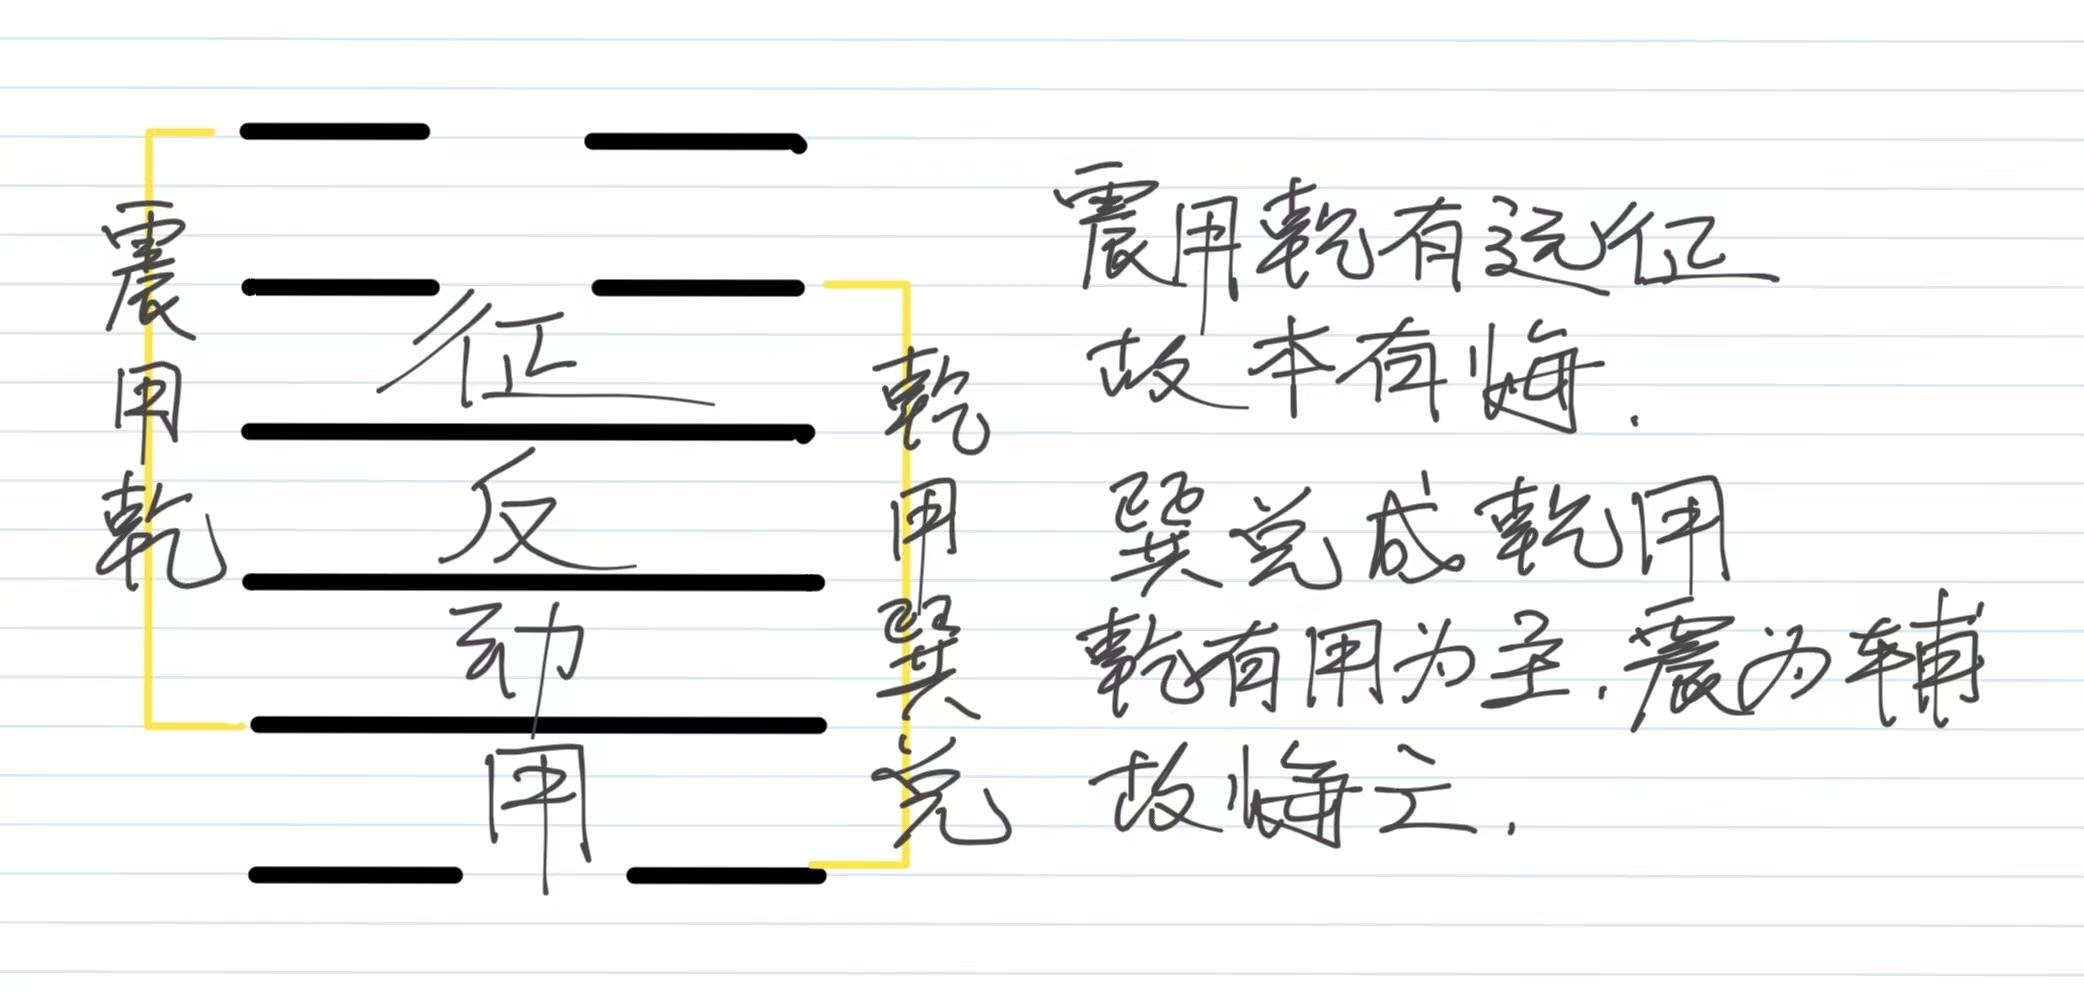 震用乾
征
反
动
用
乾用巽兑
震用乾有远征
故本有悔.
巽兑成乾用
乾有用为主.震为辅
故悔亡.